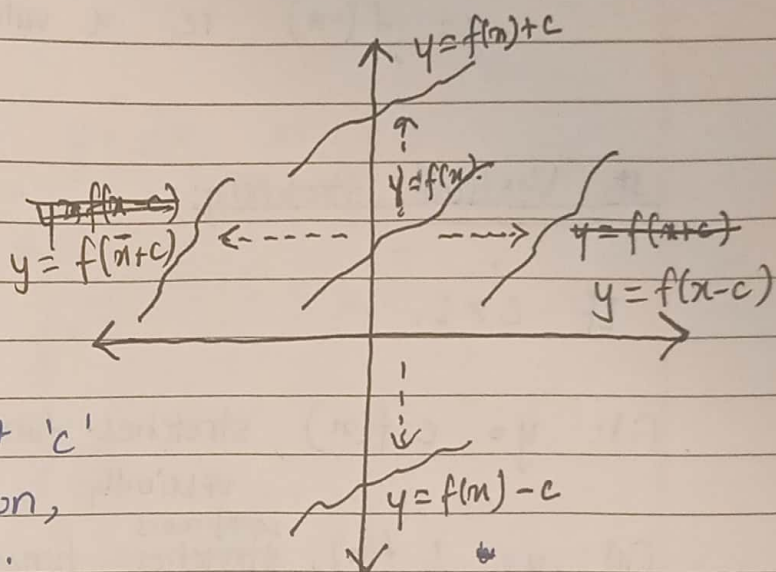 y = f(x)+c
y = f(x).
y = f(x-c)
y = f(x+c)
y = f(x+c)
y = f(x-c)
t 'c'
y = f(x) - c
on,